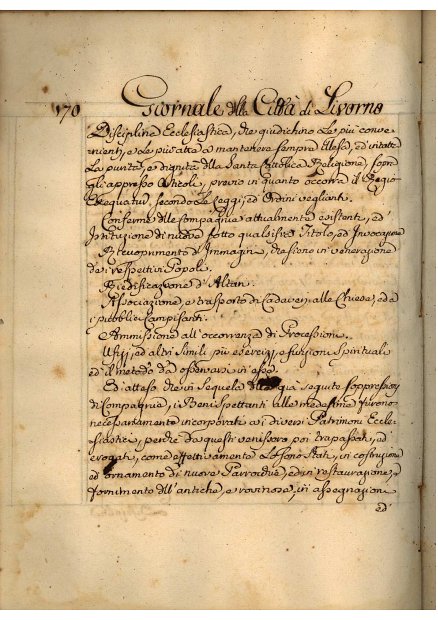 170 Giornale della Città di Livorno
Disciplina Ecclesiastica, che giudichino le più conve-
nienti, e le più atte a mantenere sempre illesa, ed intatta
la purità, e dignità della Santa Cattolica Religione, sopra
gli appresso Articoli, previo in quanto occorra il Regio
Exequatur, secondo le Leggi, ed Ordini veglianti.
Conferme delle Compagnie attualmente esistenti, ed
Istituzione di nuove sotto qualsisia Titolo, ed Invocazione
Ricuoprimento d'Immagini, che sieno in venerazione
da i respettivi Popoli.
Riedificazione d'Altari.
Associazione, e trasporto di Cadaveri alle Chiese, ed a
i pubblici Campisanti.
Ammissione all'occorrenza di Processioni.
Ufizj, ed altri simili pii esercizj, e funzioni Spirituali
ed il metodo da osservarsi in esse.
Ed atteso che in Sequela della già seguita soppressione
di Compagnie, i Beni Spettanti alle medesime furono
necessariamente incorporati a i diversi Patrimoni Eccle-
siastici, perchè da questi venissero poi trapassati, ed
erogati, come effettivamente lo sono stati, in costruzione
ed ornamento di nuove Parrocchie, ed in restaurazione, e
fornimento dell'antiche, e rovinose, in assegnazione
ed